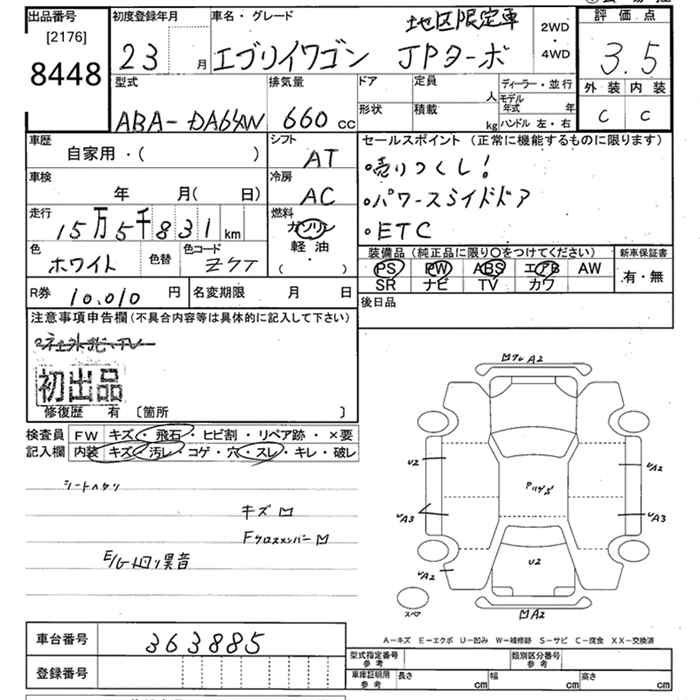 出品番号 [2176] 8448
初度登録年月 23 月
車名・グレード 地区限定車
エブリイワゴン JPターボ
2WD ・ 4WD
評価点 3.5
外装 内装
C C
型式 ABA-DA64W
排気量 660 cc
ドア
定員 人
形状
積載 kg
ディーラー・並行
モデル年式 年
ハンドル 左・右
車歴 自家用・( )
シフト AT
車検 年 月( 日)
冷房 AC
走行 15万5千831 km
燃料 ガソリン 軽油 ( )
色 ホワイト 色替
色コード Z7T
セールスポイント (正常に機能するものに限ります)
・売りつくし!
・パワースライドドア
・ETC
装備品 (純正品に限り○をつけてください)
PS PW ABS エアB AW
SR ナビ TV カワ
新車保証書 有・無
R券 10,010 円
名変期限 月 日
後日品
注意事項申告欄 (不具合内容等は具体的に記入して下さい)
初出品
修復歴 有 〔箇所 〕
検査員記入欄
FW キズ・飛石・ヒビ割・リペア跡・×要
内装 キズ・汚レ・コゲ・穴・スレ・キレ・破レ
シートヘタリ
キズ
Fクロスメンバー
E/G 異音
A2
U2
UA2
UA3
UA3
UA2
U2
A2
スペア
A-キズ E-エクボ U-凹み W-補修跡 S-サビ C-腐食 XX-交換済
車台番号 363885
登録番号
型式指定番号 参考
類別区分番号 参考
車庫証明用 参考
長さ cm
幅 cm
高さ cm